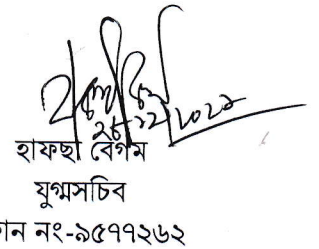 হাফছা বেগম
যুগ্মসচিব
ান নং-৯৫৭৭২৬২